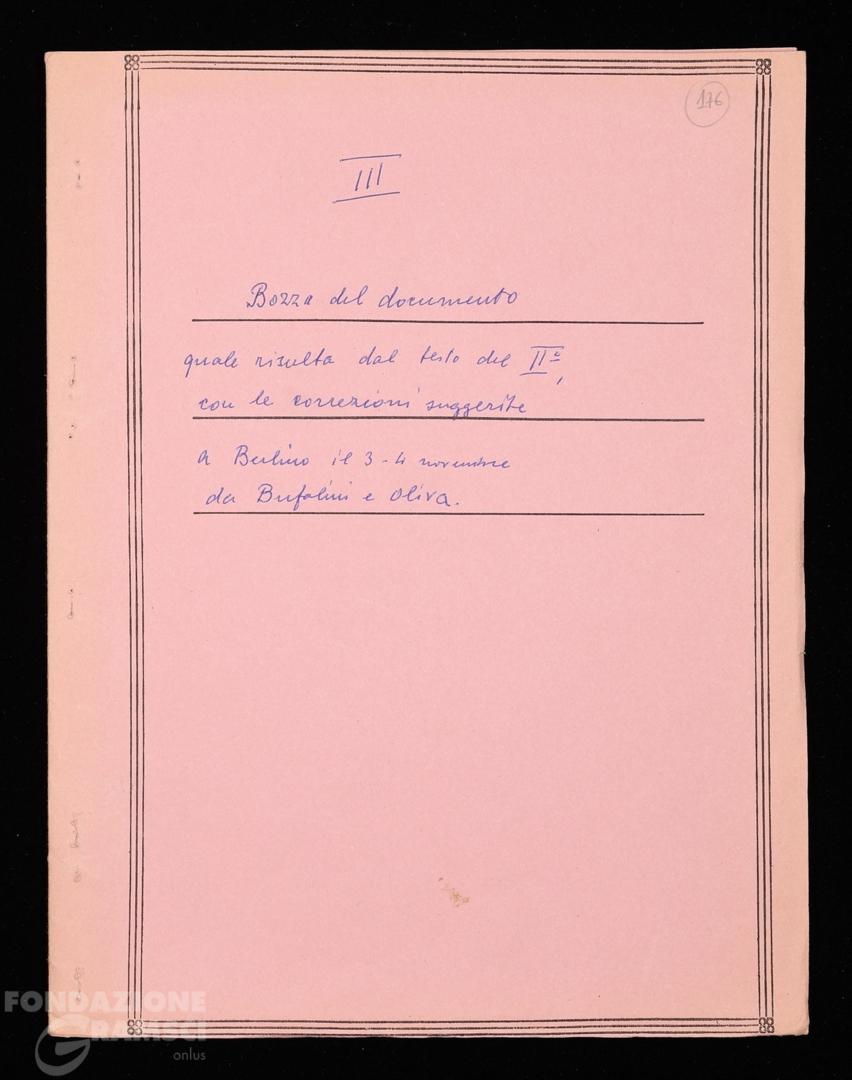 176
III
Bozza del documento
quale risulta dal testo del IIº,
con le correzioni suggerite
a Berlino il 3-4 novembre
da Bufalini e Oliva.
FONDAZIONE
GRAMSCI
onlus